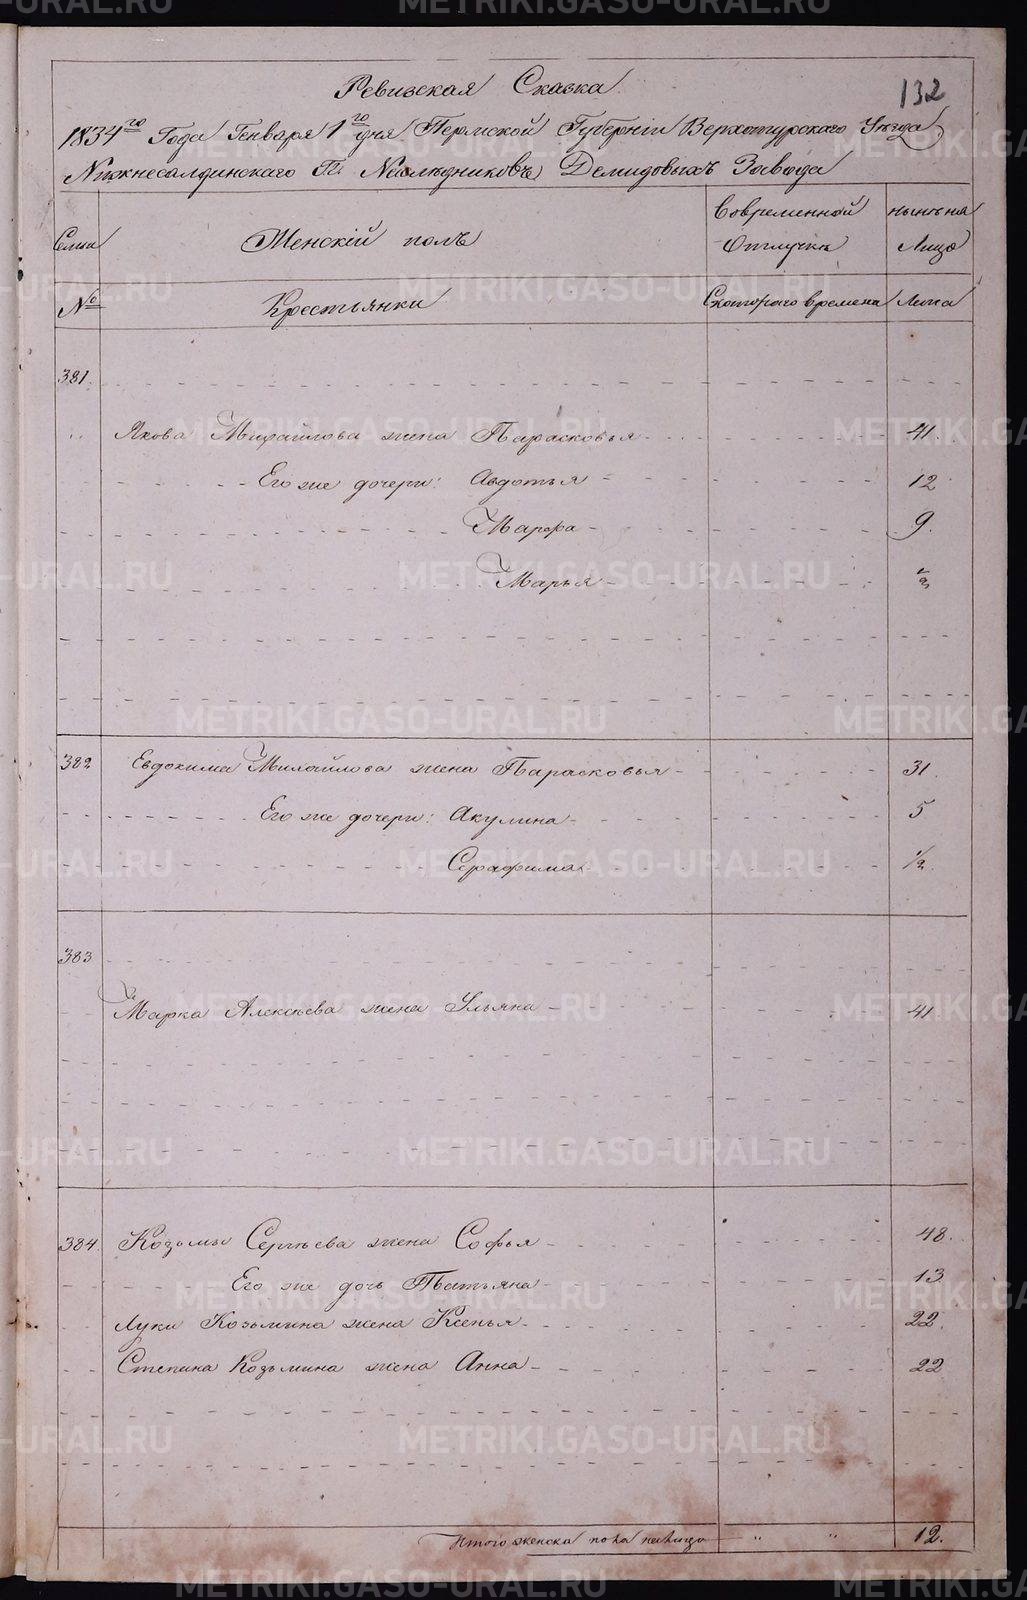 132
Ревизская Сказка
1834го Года Генваря 1го дня Пермской Губерніи Верхотурскаго Уѣзда
Нижнесалдинскаго Гг Наслѣдниковъ Демидовыхъ Завода
Семьи
Женскій полъ
Вовременной Отлучкѣ
нынѣ на Лицо
№
Крестьянки
Скотораго времени
Лѣта
381.
Якова Михайлова жена Парасковья 41.
Его же дочери: Авдотья 12
Марфа 9.
Марья 1/2
382 Евдокима Михайлова жена Парасковья 31.
Его же дочери: Акулина 5
Серафима 1/2
383
Марка Алексѣева жена Ульяна 41
384. Козьмы Сергѣева жена Софья 48.
Его же дочь Татьяна 13
Луки Козьмина жена Ксенья 22.
Степана Козьмина жена Анна 22
Итого женска пола налицо " " 12.
METRIKI.GASO-URAL.RU